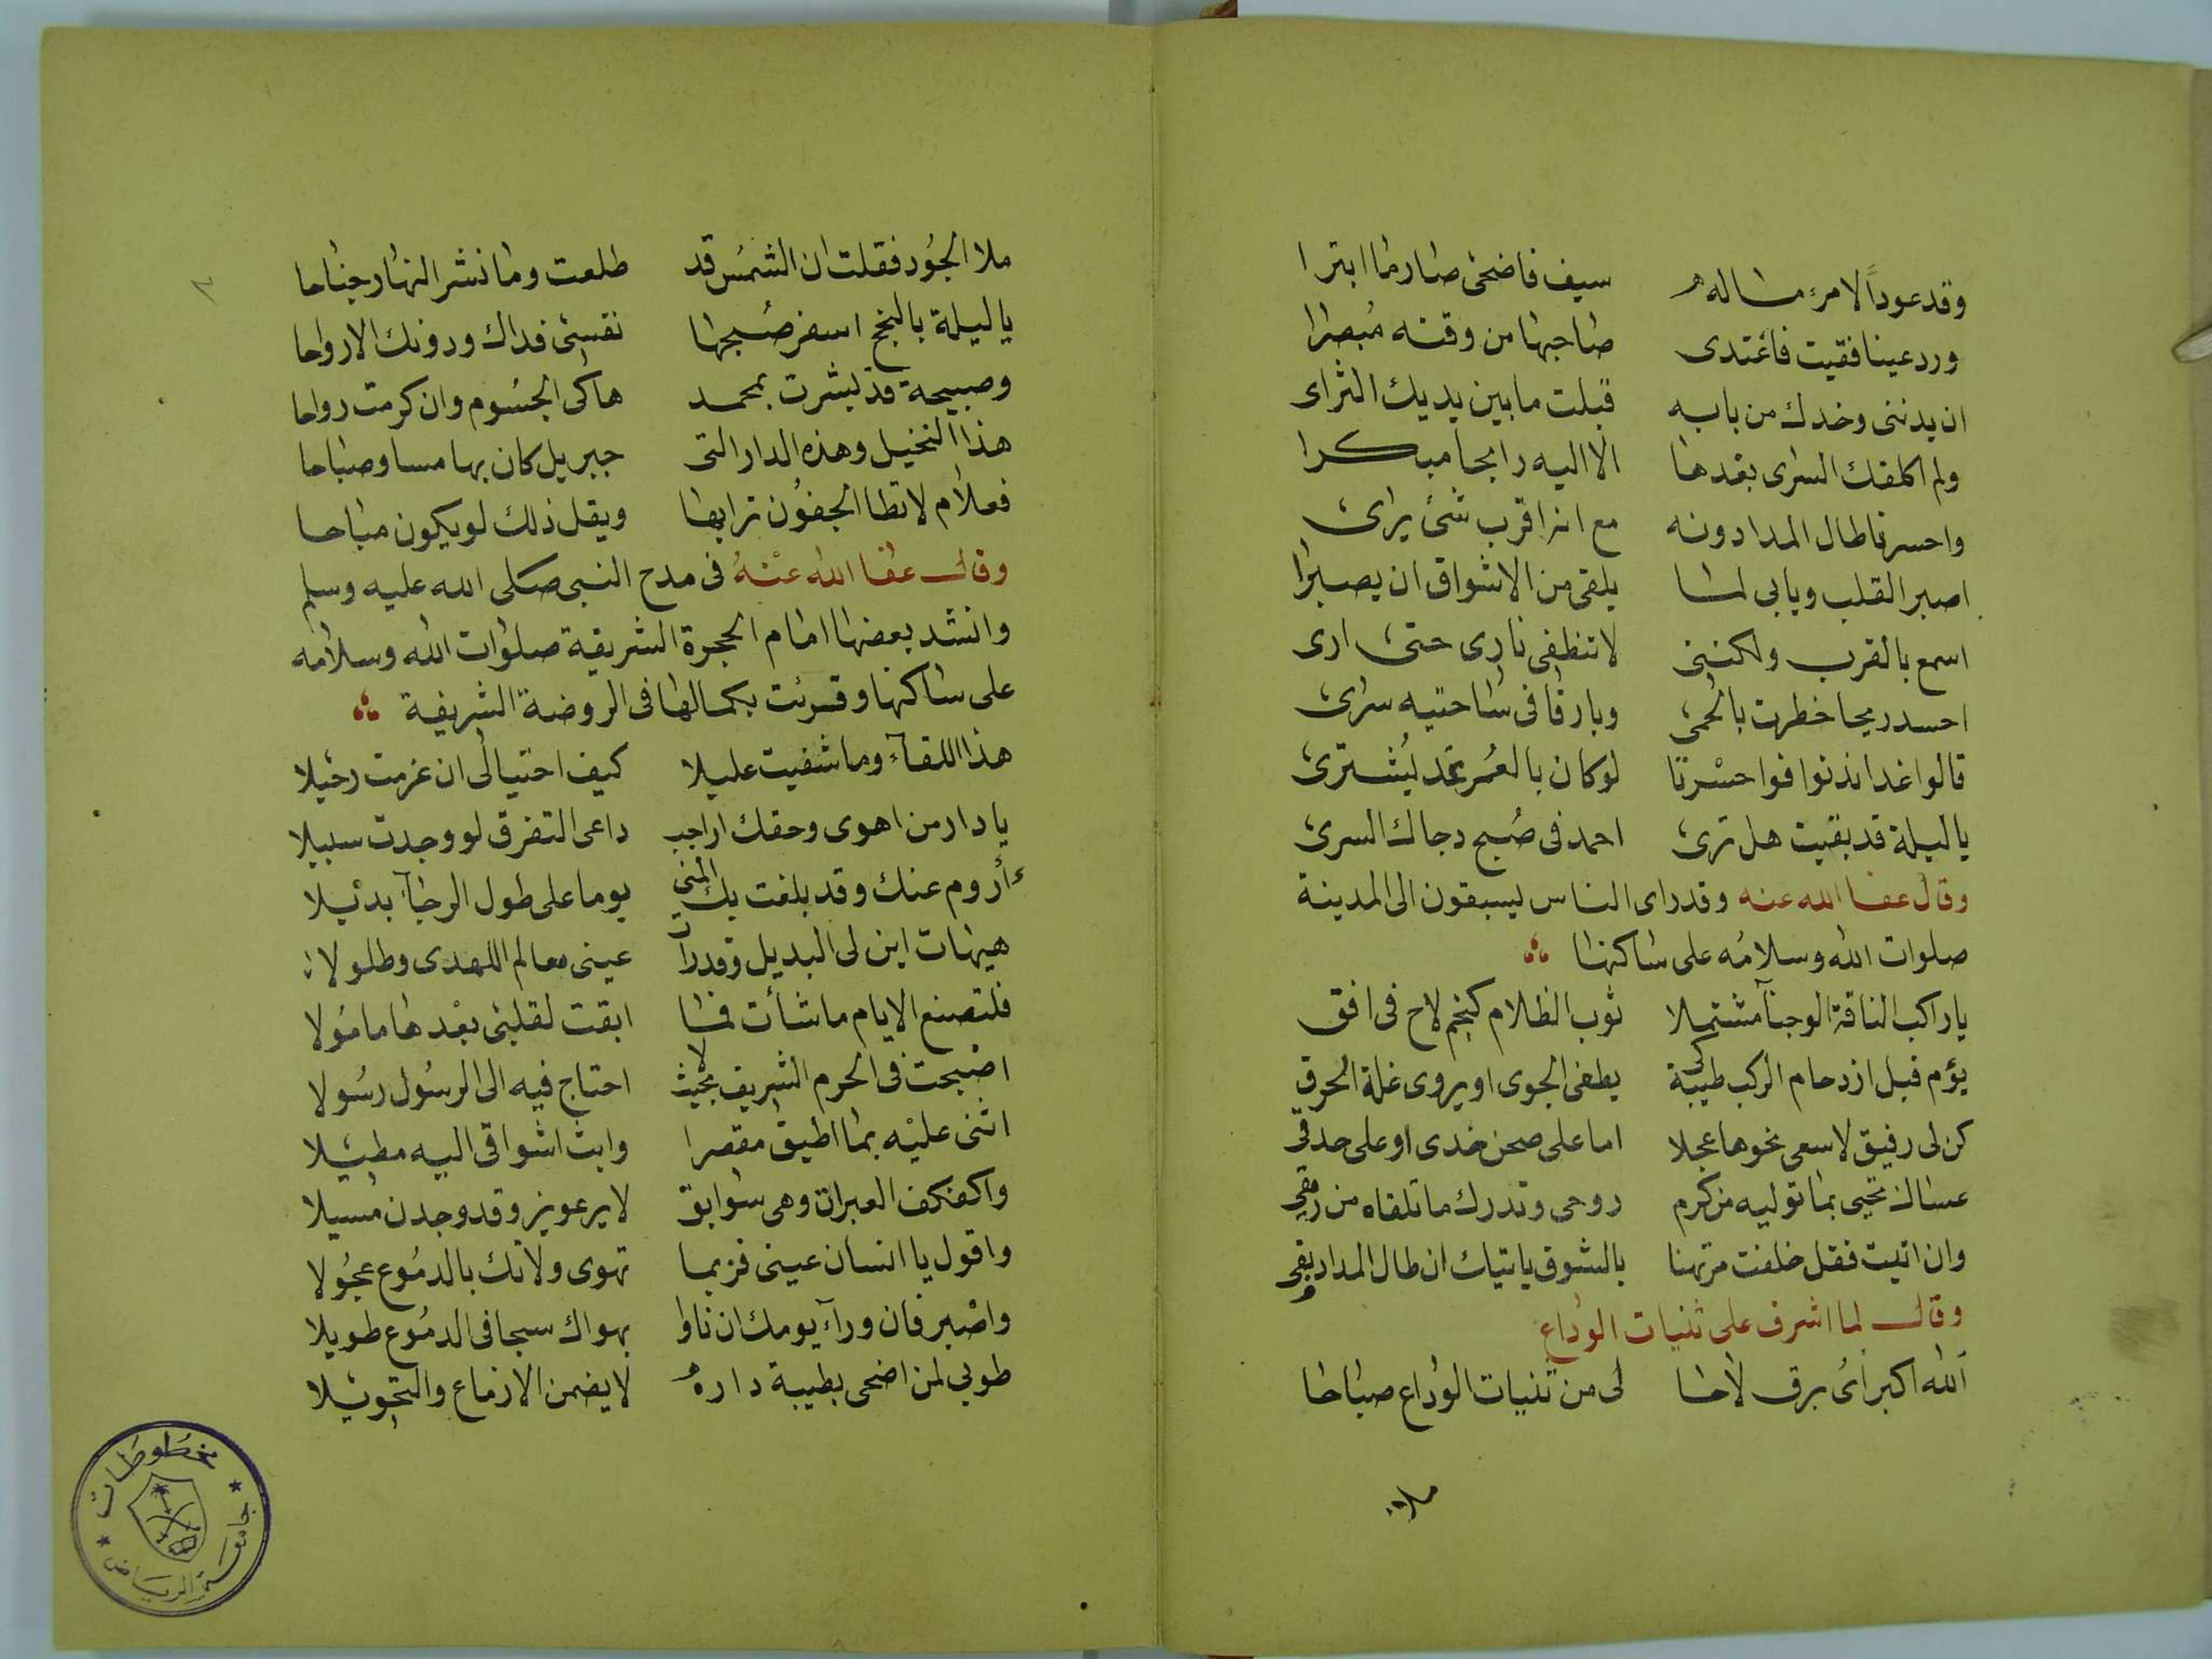 وقد عوداً لامرء ماله سيف فاضحى صارما ابترا
ورد عينا فقيت فاغتدى صاحبها من وقته مبصرا
ان يدننى وخدك من بابه قبلت ما بين يديك الثراى
ولم اكلفك السرى بعدها الا اليه رايحا مبكرا
واحسرتا طال المدا دونه مع انه اقرب شئ يراى
اصبر القلب ويابى لما يلقى من الاشواق ان يصبرا
اسمع بالقرب ولكننى لا تنطفى نارى حتى ارى
احسد ريحا خطرت بالحمى وبارقا فى ساحتيه سرى
قالوا غدا ندنوا فوا حسرتا لو كان بالعمر غد يشترى
يا ليلة قد بقيت هل ترى احمد فى صبح دجاك السرى
وقال عفا الله عنه وقد راى الناس يسبقون الى المدينة
صلوات الله وسلامه على ساكنها
يا راكب الناقة الوجنآ مشتملا ثوب الظلام كنجم لاح فى افق
يؤم قبل ازدحام الركب طيبة كى يطفى الجوى او يروى غلة الحرق
كن لى رفيق لاسعى نحوها عجلا اما على صحن خدى او على حدقى
عساك تحيى بما توليه من كرم روحى وتدرك ما تلقاه من رمقى
وان اتيت فقل خلفت مرتهنا بالشوق ياتيك ان طال المدا وبقى
وقال لما اشرف على ثنيات الوداع
الله اكبر اى برق لاحا لى من ثنيات الوداع صباحا
ملا
ملا الجود فقلت ان الشمس قد طلعت وما نشر النهار جناحا
يا ليلة بالنجح اسفر صبحها نفسى فداك ودونك الارواحا
وصبيحة قد بشرت بمحمد هاكى الجسوم وان كرمت رواحا
هذا النخيل وهذه الدار التى جبريل كان بها مسا وصباحا
فعلام لا تطا الجفون ترابها ويقل ذلك لو يكون مباحا
وقال عفا الله عنه فى مدح النبى صلى الله عليه وسلم
وانشد بعضها امام الحجرة الشريفة صلوات الله وسلامه
على ساكنها وقرئت بكمالها فى الروضة الشريفة
هذا اللقآء وما شفيت عليلا كيف احتيالى ان عزمت رحيلا
يا دار من اهوى وحقك اراجب داعى التفرق لو وجدت سبيلا
أأروم عنك وقد بلغت بك المنى يوما على طول الرجآ بديلا
هيهات اين لى البديل وقد رأت عينى معالم للهدى وطلولا
فلتصنع الايام ما شأت فما ابقت لقلبى بعدها مامولا
اصبحت فى الحرم الشريف بحيث لا احتاج فيه الى الرسول رسولا
اثنى عليه بما اطيق مقصرا وابث اشواقى اليه مطيلا
واكفكف العبرات وهى سوابق لا يرعوين وقد وجدن مسيلا
واقول يا انسان عينى فز بما تهوى ولا تك بالدموع عجولا
واصبر فان ورآء يومك ان ناوا بهواك سبحا فى الدموع طويلا
طوبى لمن اضحى بطيبة داره لا يضمن الازماع والتحويلا
مخطوطات
جامعة الرياض